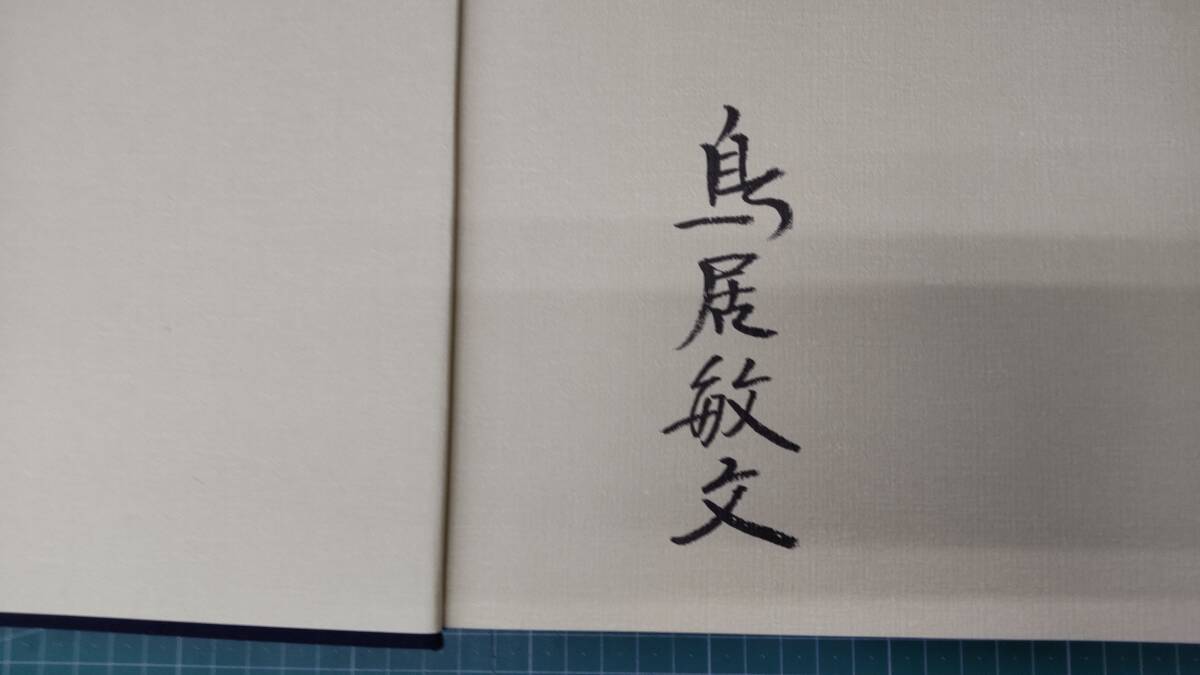 鳥居敏文